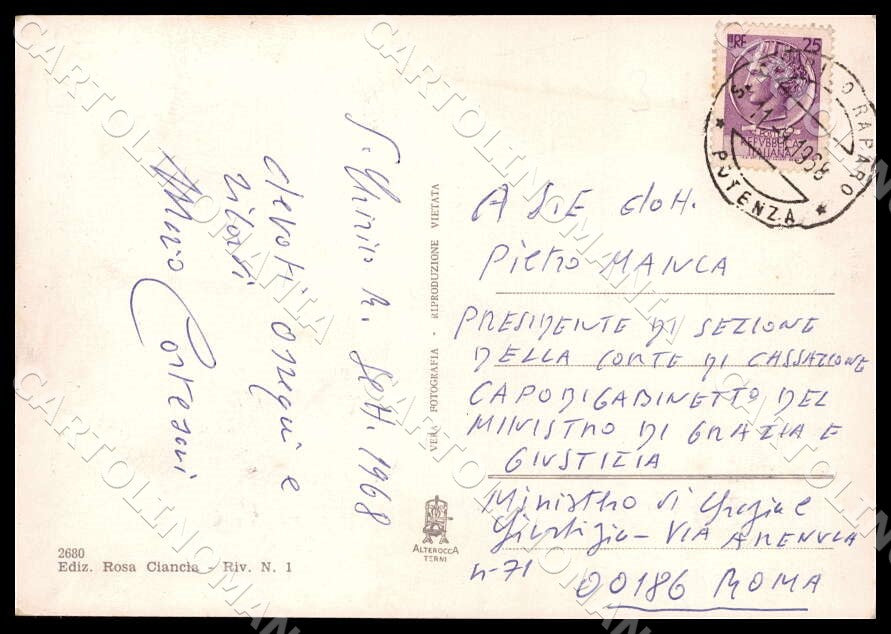 S. Chirico R. Sett. 1968
devoti ossequi e
Mario Cortesani
VERA FOTOGRAFIA - RIPRODUZIONE VIETATA
LIRE 25
REPVBBLICA
ITALIANA
11-9.1968
RAPARO
* POTENZA *
A S.E. dott.
Pietro MANCA
PRESIDENTE DI SEZIONE
DELLA CORTE DI CASSAZIONE
CAPO DI GABINETTO DEL
MINISTRO DI GRAZIA E
GIUSTIZIA
Ministro di Grazia e
Giustizia - VIA ARENULA
n-71
00186 ROMA
ALTEROCCA
TERNI
2680
Ediz. Rosa Ciancia - Riv. N. 1
CARTOLINOMANIA